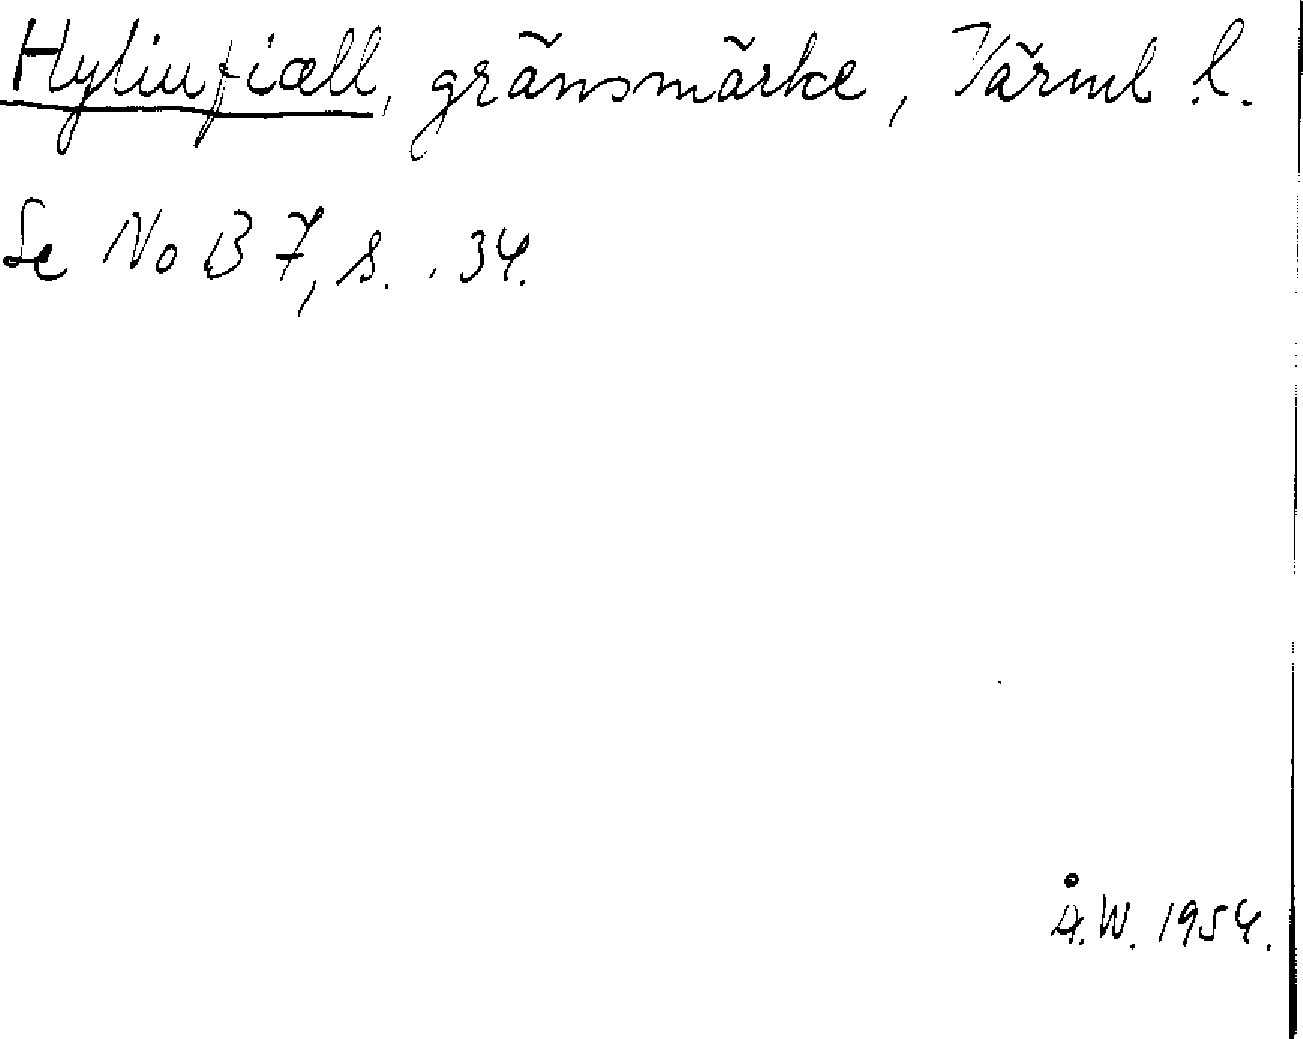 Hyliufiæll, gränsmärke, Värml l.
Se NoB 7, s. 34.
Å.W. 1954.